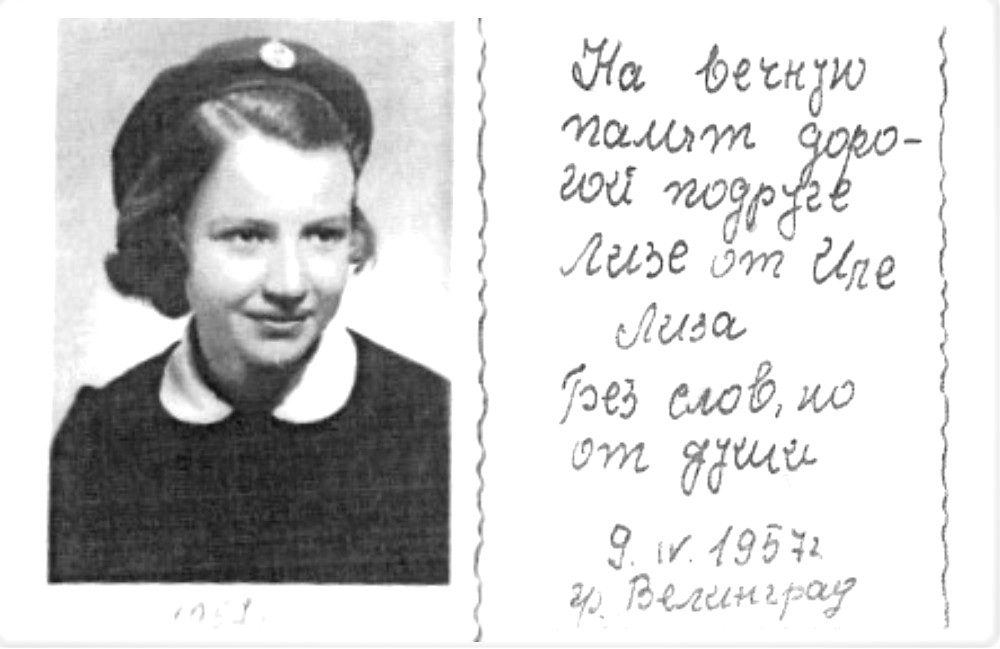 На вечную
памят доро-
гой подруге
Лизе от Ире
Лиза
Без слов, но
от души
9. IV. 1957г.
гр. Велинград